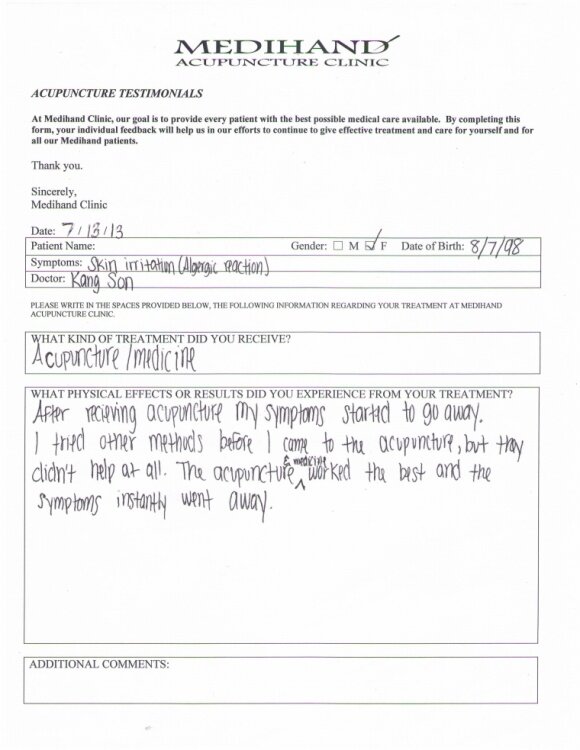 MEDIHAND
ACUPUNCTURE CLINIC
ACUPUNCTURE TESTIMONIALS
At Medihand Clinic, our goal is to provide every patient with the best possible medical care available. By completing this
form, your individual feedback will help us in our efforts to continue to give effective treatment and care for yourself and for
all our Medihand patients.
Thank you.
Sincerely,
Medihand Clinic
Date: 7/13/13
Patient Name: Gender: ☐ M ☑ F Date of Birth: 8/7/98
Symptoms: Skin irritation (Algergic reaction)
Doctor: Kang Son
PLEASE WRITE IN THE SPACES PROVIDED BELOW, THE FOLLOWING INFORMATION REGARDING YOUR TREATMENT AT MEDIHAND
ACUPUNCTURE CLINIC.
WHAT KIND OF TREATMENT DID YOU RECEIVE?
Acupuncture/medicine
WHAT PHYSICAL EFFECTS OR RESULTS DID YOU EXPERIENCE FROM YOUR TREATMENT?
After recieving acupuncture my symptoms started to go away.
I tried other methods before I came to the acupuncture, but they
didn't help at all. The acupuncture & medicine worked the best and the
symptoms instantly went away.
ADDITIONAL COMMENTS: